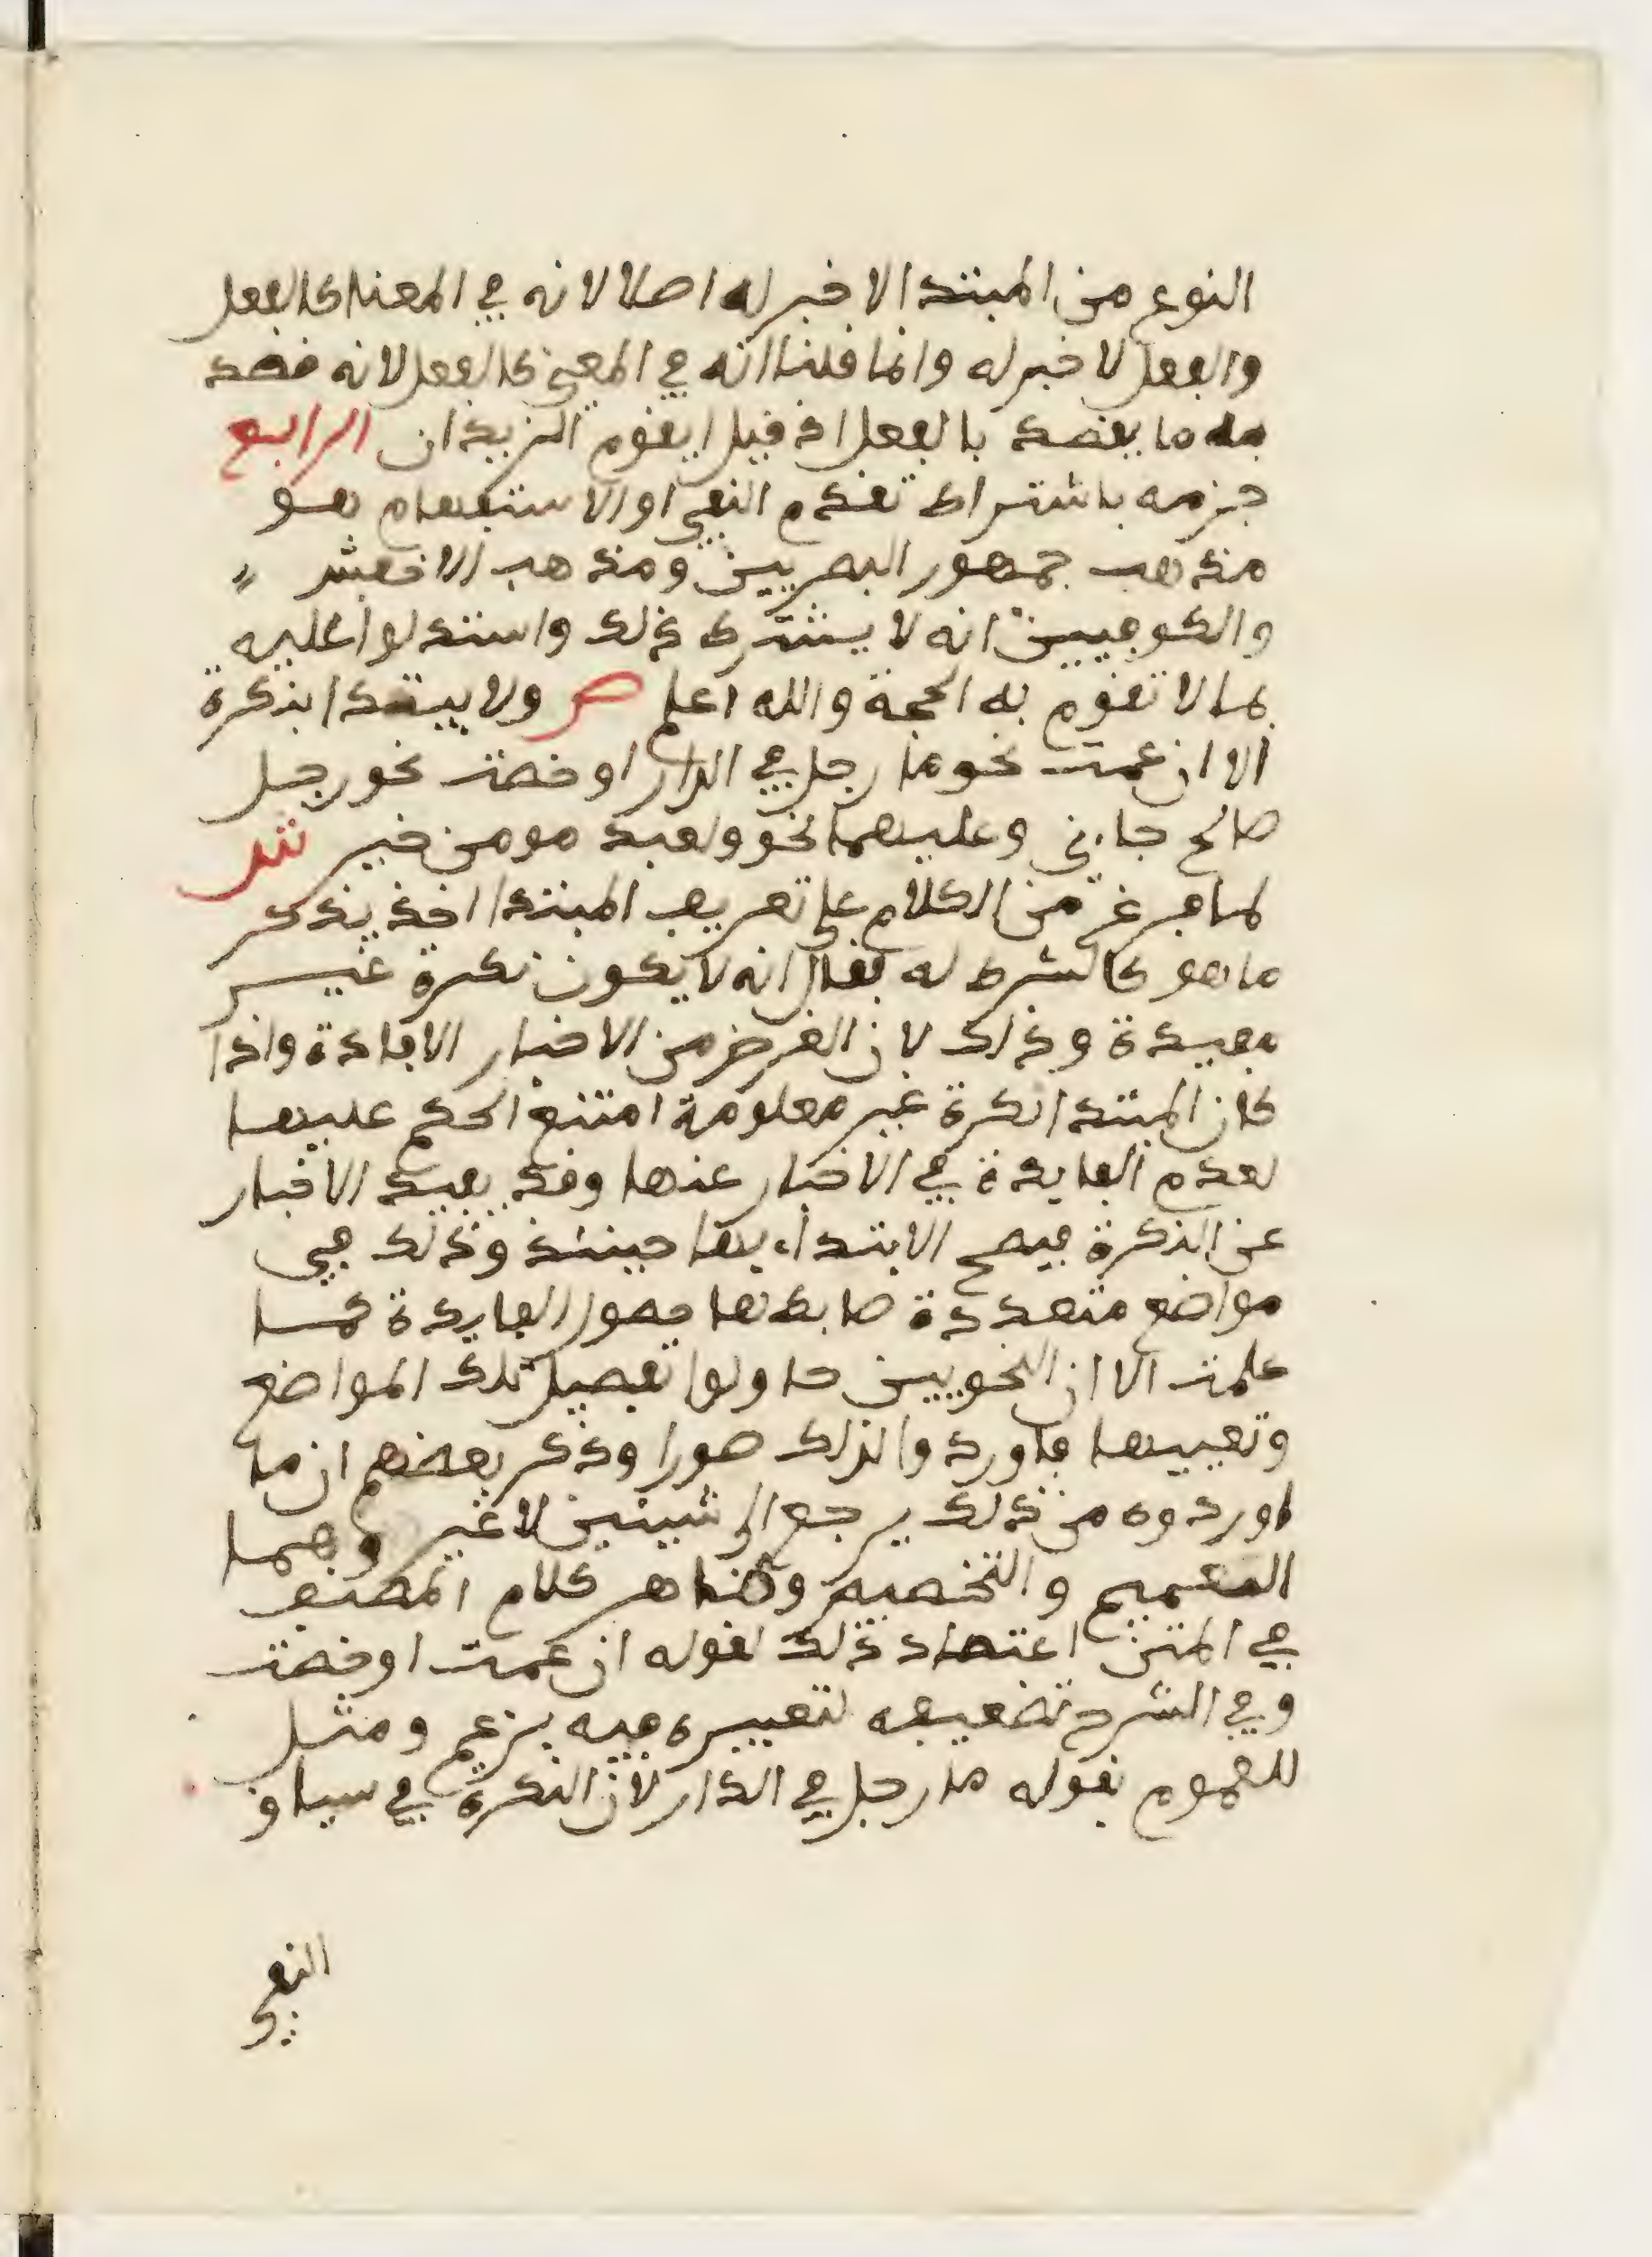 النوع من المبتدا لا خبر له اصلا لانه في المعنا كالفعل
والفعل لا خبر له وانما قلنا انه في المعنى كالفعل لانه قصد
به ما يقصد بالفعل اذ قيل ايقوم الزيدان الرابع
جزمه باشتراط تقدم النفي او الاستفهام هو
مذهب جمهور البصريين ومذهب الاخفش
والكوفيين انه لا يشترط ذلك واستدلوا عليه
بما لا تقوم به الحجة والله اعلم ص ولا يبتدا بنكرة
الا ان عمت نحو ما رجل في الدار او خصت نحو رجل
صالح جاءني وعليهما نحو ولعبد مومن خير ش
لما فرغ من الكلام على تعريف المبتدا اخذ يذكر
ما هو كالشرط له فقال انه لا يكون نكرة غير
مفيدة وذلك لان الغرض من الاخبار الافادة واذا
كان المبتدا نكرة غير معلومة امتنع الحكم عليها
لعدم الفايدة في الاخبار عنها وقد يفيد الاخبار
عن النكرة فيصح الابتداء بها حينئذ وذلك في
مواضع متعددة ضابطها حصول الفايدة كما
علمت الا ان النحويين حاولوا تفصيل تلك المواضع
وتعيينها فاوردوا لذلك صورا وذكر بعضهم ان ما
اوردوه من ذلك يرجع الى شيئين لا غير وهما
التعميم والتخصيص وظاهر كلام المصنف
في المتن اعتماد ذلك لقوله ان عمت او خصت
وفي الشرح تضعيفه لتعبيره فيه بزعم ومثل
للعموم بقوله ما رجل في الدار لان النكرة في سياق
النفي